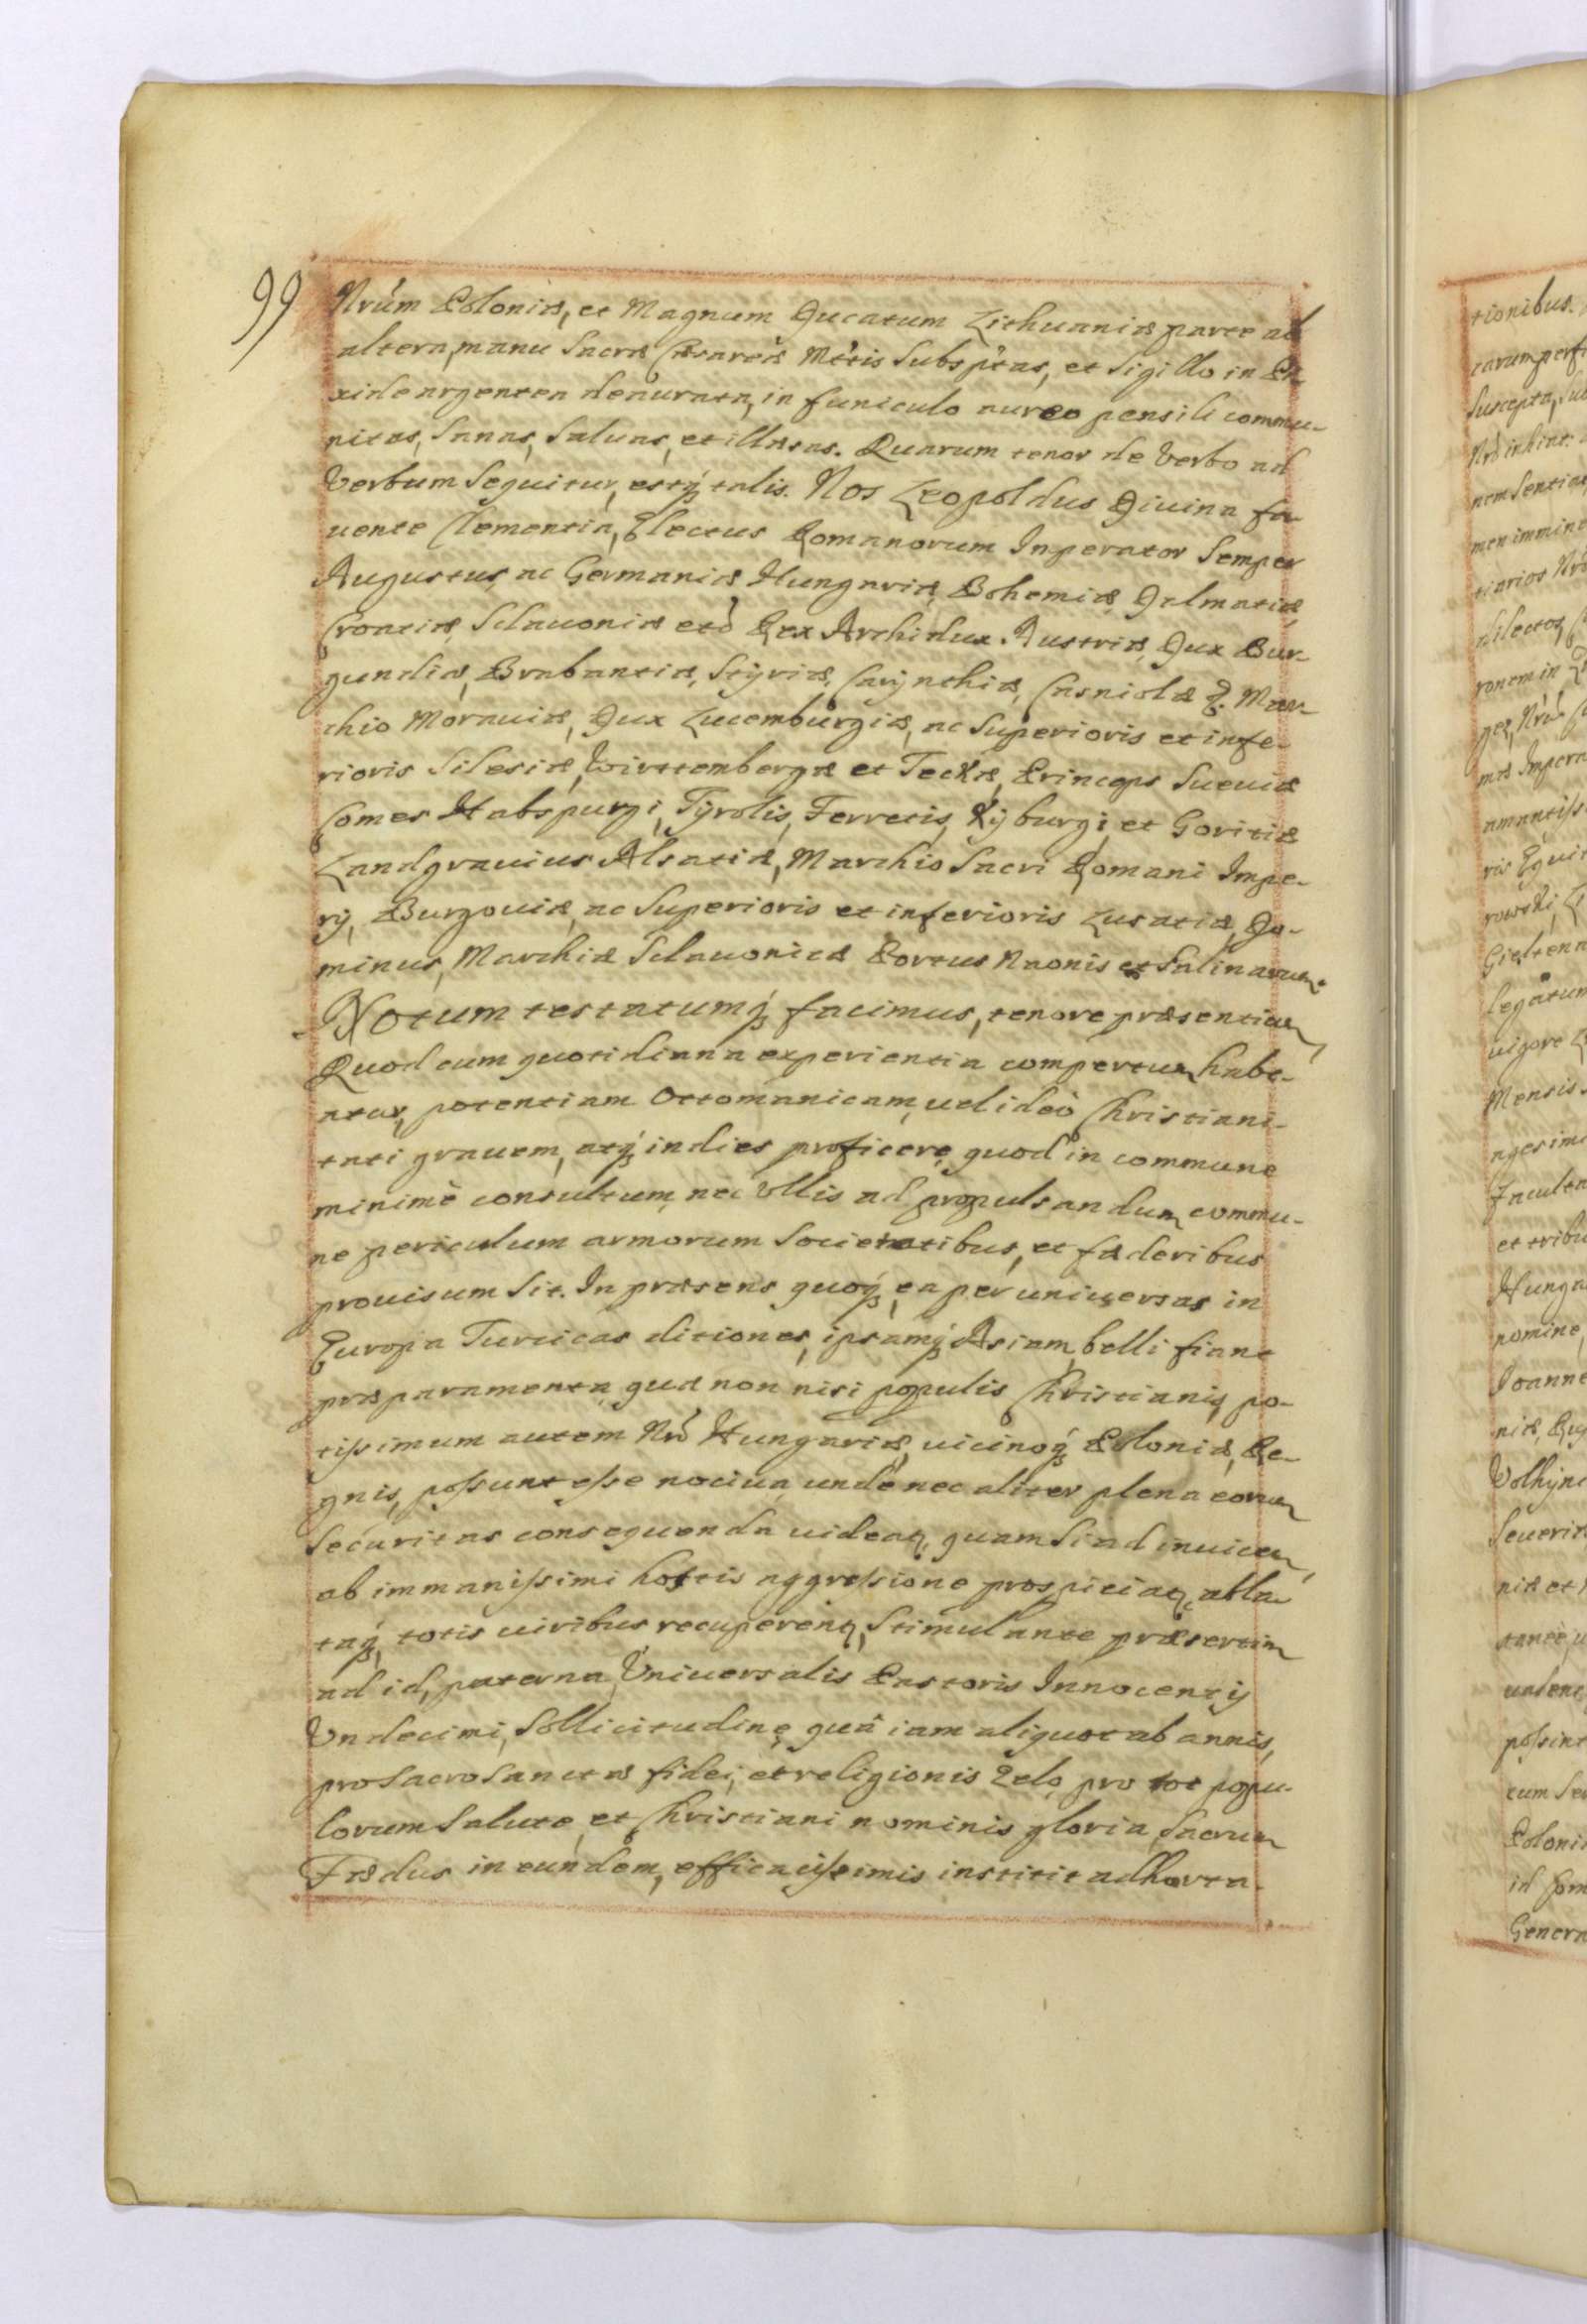 99
Nrũm Poloniæ, et Magnum Ducatum Lithuaniæ parte ab
altera, manu Sacræ Cæsareæ Mttis Subsptas, et Sigillo in Pi-
xide argentea deaurata, in funiculo aureo pensili commu-
nitas, Sanas, Saluas, et illæsas. Quarum tenor de Verbo ad
Verbum Sequitur, estq; talis. Nos Leopoldus Diuina fa-
uente Clementia, Electus Romanorum Inperator Semper
Augustus, ac Germaniæ Hungariæ, Bohemiæ, Dalmatiæ,
Croatiæ, Sclauoniæ etc Rex Archidux Austriæ, Dux Bur-
gundiæ, Brabantiæ, Styriæ, Carynthiæ, Carniolæ &. Mar-
chio Morauiæ, Dux Lucemburgiæ, ac Superioris et infe-
rioris Silesiæ, Wirttembergæ et Teckæ, Princeps Sueuiæ
Comes Habspurgi, Tyrolis, Ferretis, Kyburgi, et Goritiæ
Landgrauius Alsatiæ, Marchio Sacri Romani Impe-
rij, Burgouiæ, ac Superioris et inferioris Lusatiæ, Do-
minus, Marchiæ Sclauonicæ Portus Naonis et Salinarum.
Notum testatumq; facimus, tenore præsentium
Quod cum quotidiana experientia compertum habe-
atur, potentiam Ottomanicam, uel ideò Christiani-
tati grauem, atq; indies proficere, quod in commune
minimè consultum, nec Vllis ad propulsandum commu-
ne periculum armorum Societatibus, et fæderibus
prouisum Sit. In præsens quoq;, ea per uniuersas in
Europa Turcicas ditiones, ipsamq; Asiam, belli fiant
præparamenta, quæ non nisi populis Christianis, po-
tissimum autem Nrõ Hungariæ, uicinoq; Poloniæ, Re-
gnis, possunt esse nociua, unde nec aliter plena eorum
Securitas consequenda uideatr, quam Si ad inuicem
ab immanissimi hostis aggressione prospiciatr, abla-
taq;, totis uiribus recuperentr, Stimulante præsertim
ad id, paterna Vniuersalis Pastoris Innocentij
Vndecimi, Sollicitudine, quâ iam aliquot ab annis,
pro Sacro Sanctæ fidei, et religionis Zelo, pro tot popu-
lorum Salute, et Christiani nominis gloria, Sacrum
Fædus in eundem, efficacissimis institit adhorta-
tionibus.
Suscepta,
dilectos,
amantiss
rowski,
legatum
Mensis
et tribu
nomine,
Joanne
Volhyn
possint
Poloni
Genera